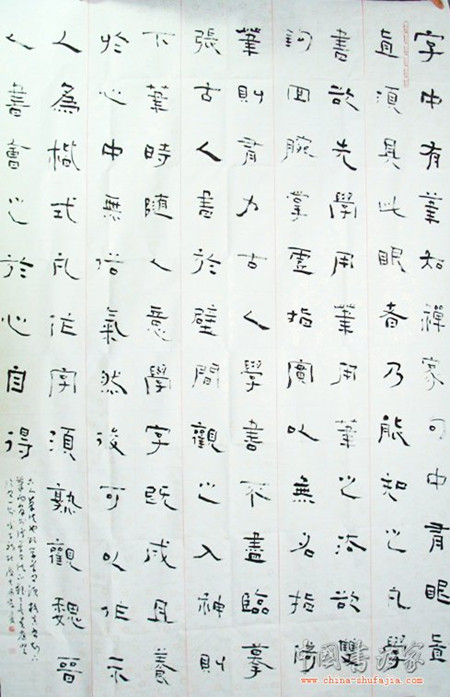 字中有筆知禪家句中有眼直
直須具此眼者乃能知之凡學
書欲先學用筆用筆之法欲雙
鉤回腕掌虛指實以無名指倚
筆則有力古人學書不盡臨摹
張古人書於壁間觀之入神則
下筆時隨人意學字既成且養
於心中無俗氣然後可以作示
人為楷式凡作字須熟觀魏晉
人書會之於心自得
中國書法家
www.china-shufajia.com